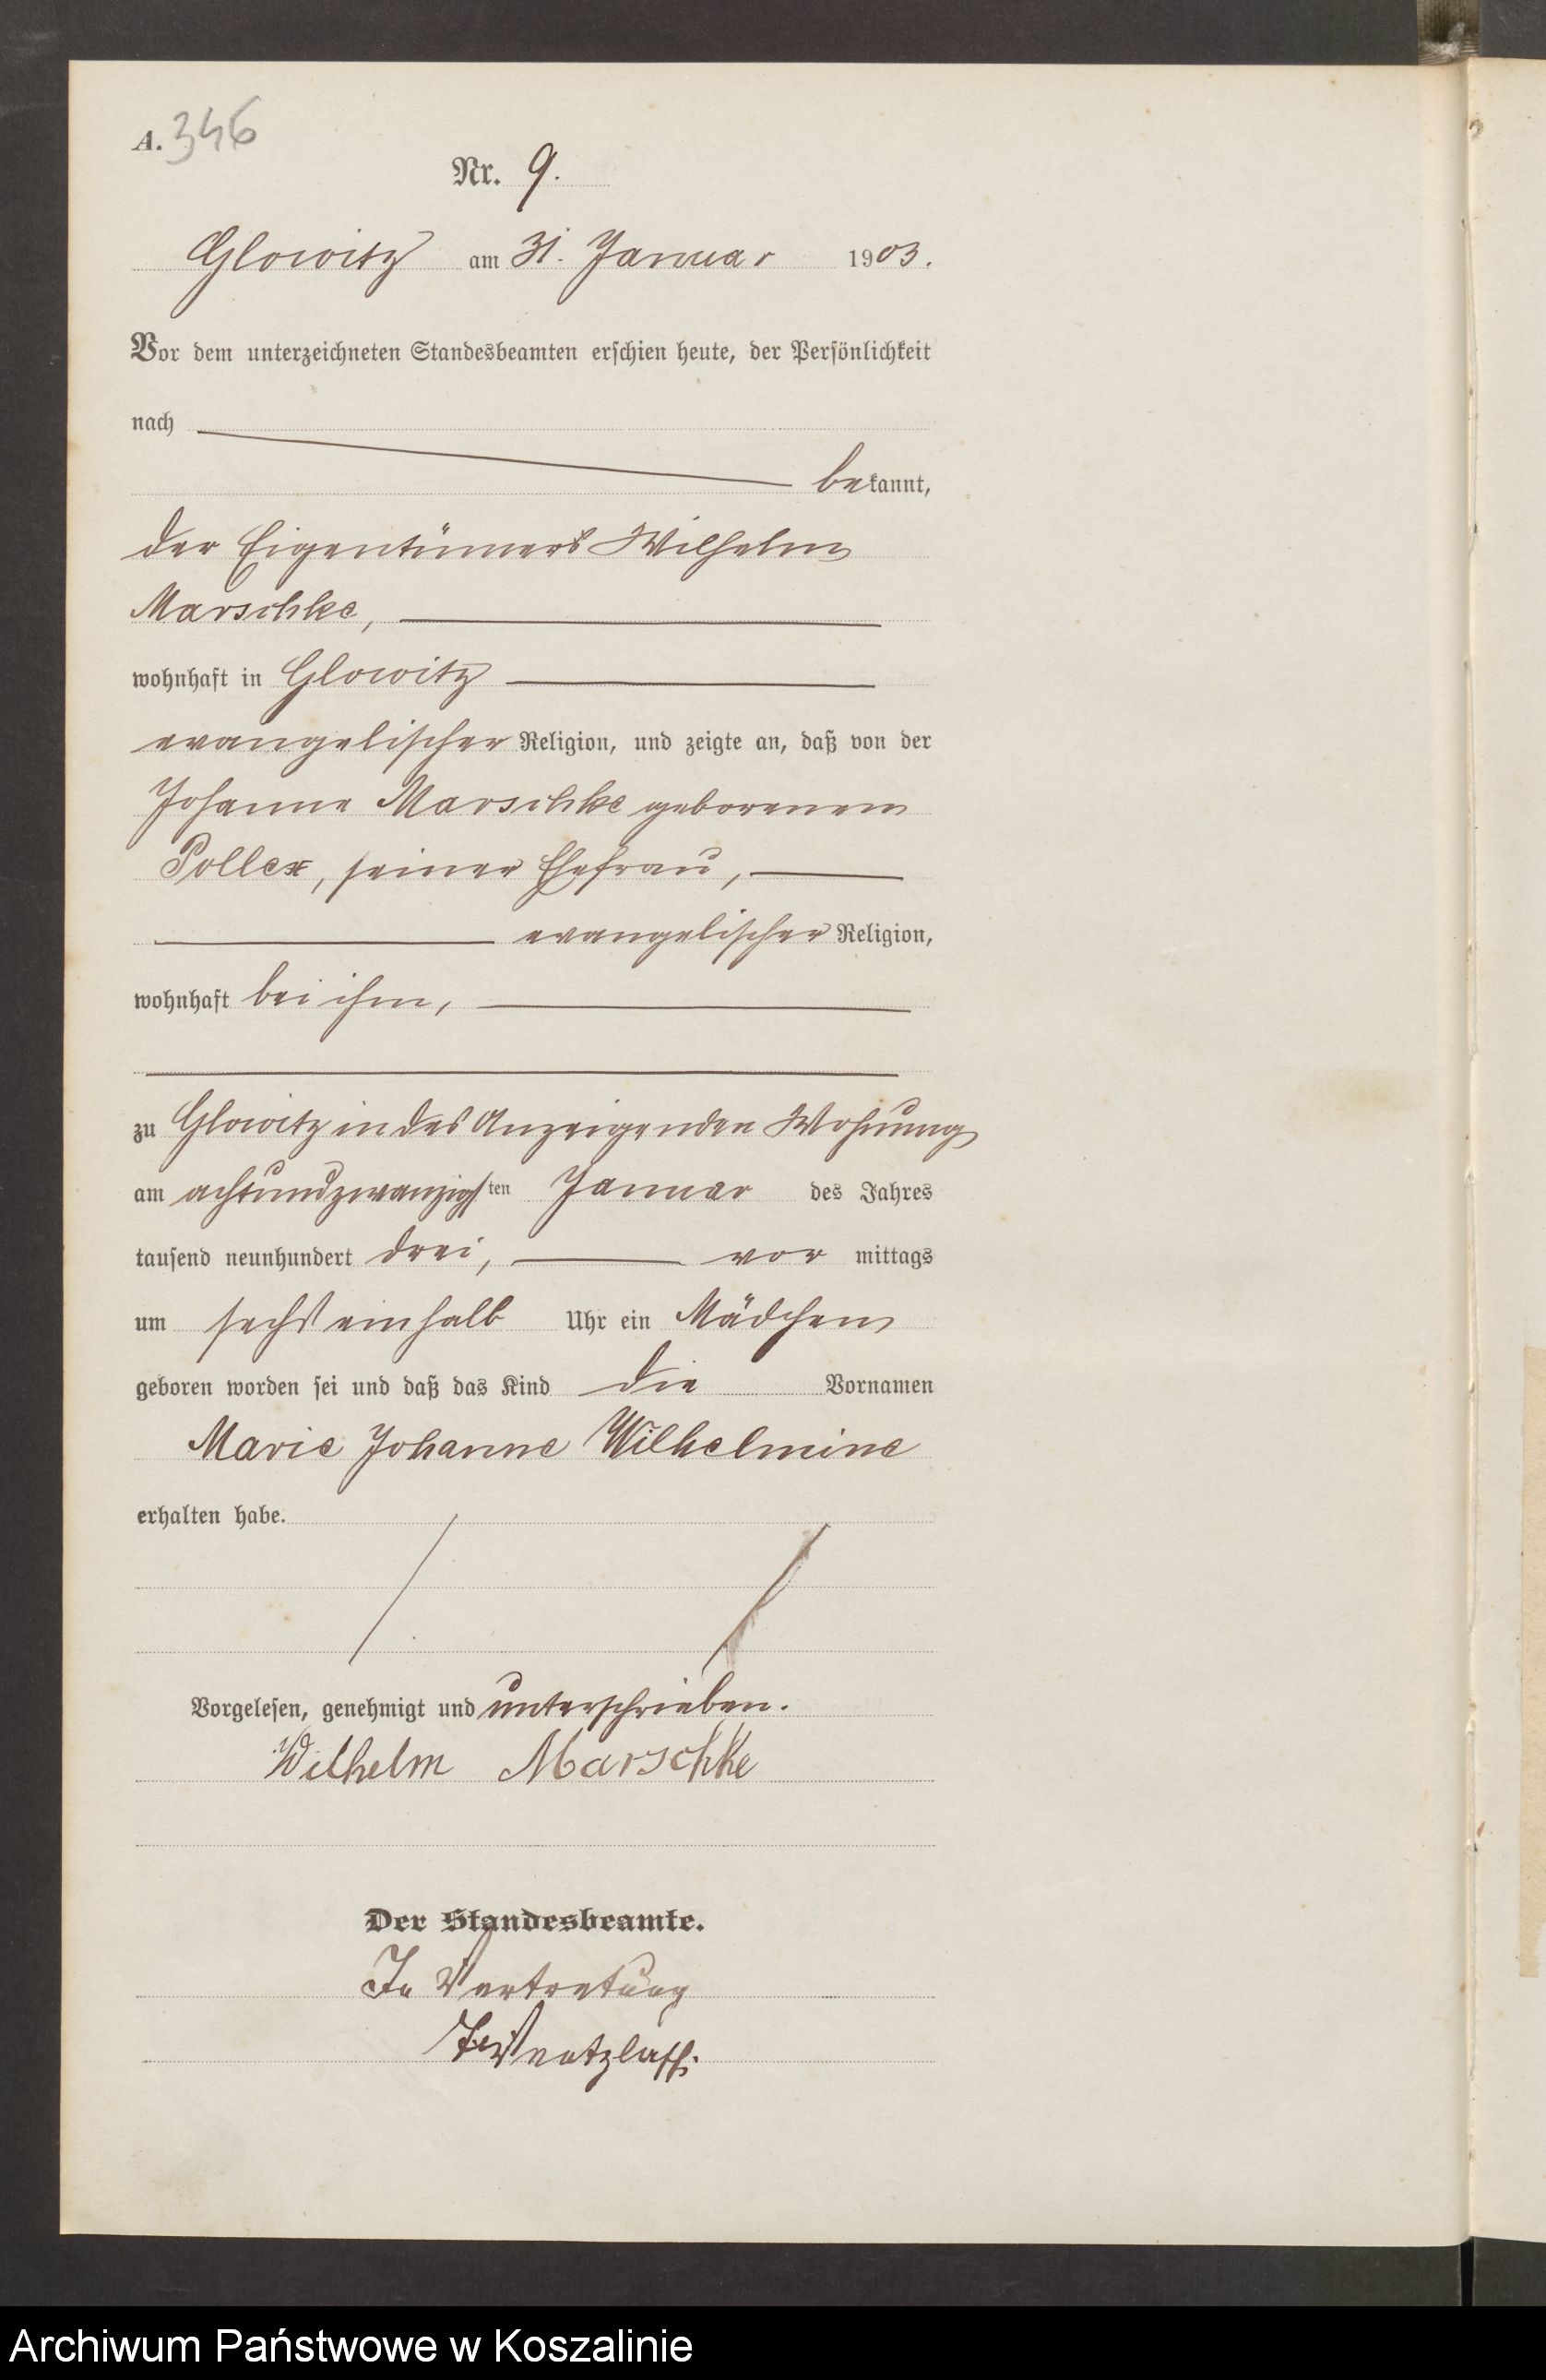 A. 346
Nr. 9.
Glowitz am 31. Januar 1903.
Vor dem unterzeichneten Standesbeamten erschien heute, der Persönlichkeit
nach
bekannt,
der Eigentümers Wilhelm
Marschke,
wohnhaft in Glowitz
evangelischer Religion, und zeigte an, daß von der
Johanne Marschke geborenen
Pollex, seiner Ehefrau,
evangelischer Religion,
wohnhaft bei ihm,
zu Glowitz in des Anzeigenden Wohnung
am achtundzwanzigsten Januar des Jahres
tausend neunhundert drei, vor mittags
um sechs einhalb Uhr ein Mädchen
geboren worden sei und daß das Kind die Vornamen
Marie Johanne Wilhelmine
erhalten habe.
Vorgelesen, genehmigt und unterschrieben.
Wilhelm Marschke
Der Standesbeamte.
In Vertretung
Archiwum Państwowe w Koszalinie